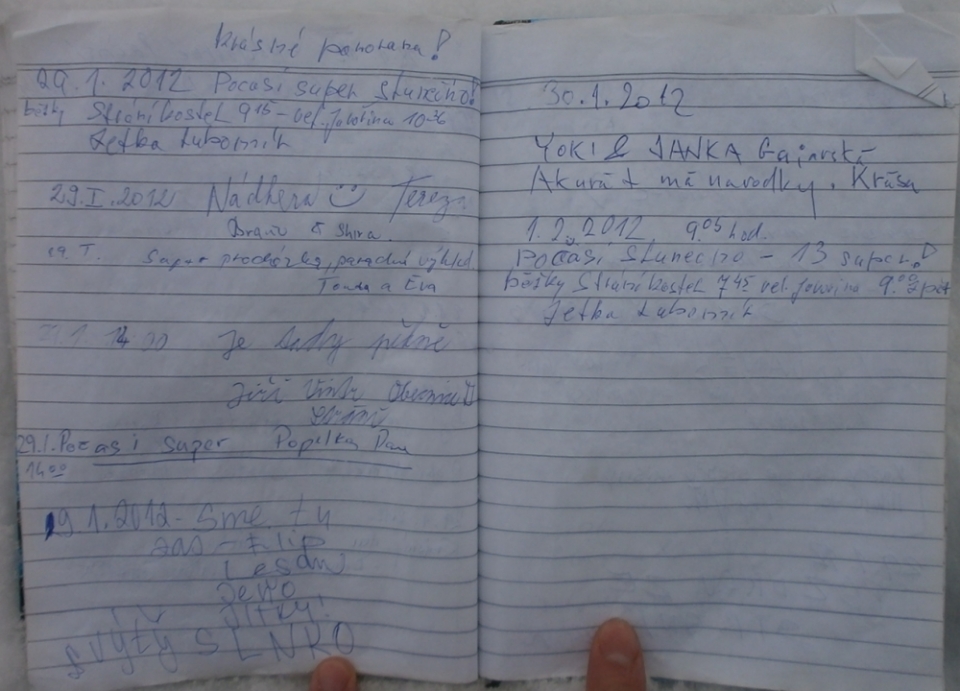 krásné panorama!
29.1.2012 Počasí super Slunečno!
běžky Strání kostel 9 15 - vel. Javořina 10 36
Letba Lubomík
29.I.2012 Nádhera Tereza
& Shira.
Super procházka, paradní výhled
Tonda a Eva
14 00 Je tady pěkně
Jiří
Strání
29.1. Počasí super Popelka Dan
14 00
9.1.2012 - Sme tu
zas - Filip
SVÝTÝ SLNKO
30.1.2012
YOKI & JANKA Gajarská
Akurát má narodky. Krása
1.2.2012 9.05 hod.
Počasí Slunečno - 13 super!
běžky Strání kostel 7 45 vel. Javořina 9.00 zpět
Letba Lubomík